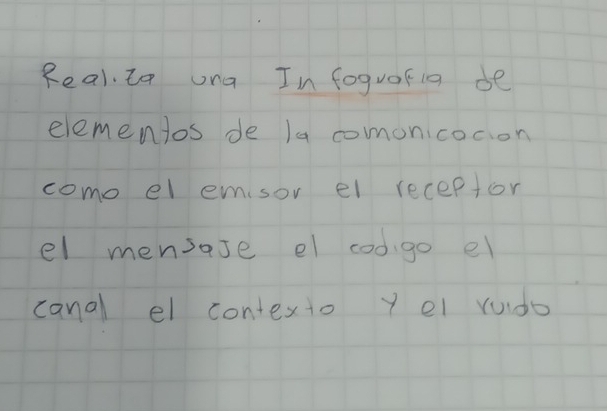 Realiza una Infografia de
elementos de la comonicacion
como el emisor el receptor
el mensaje el codigo el
canal el contexto y el ruido